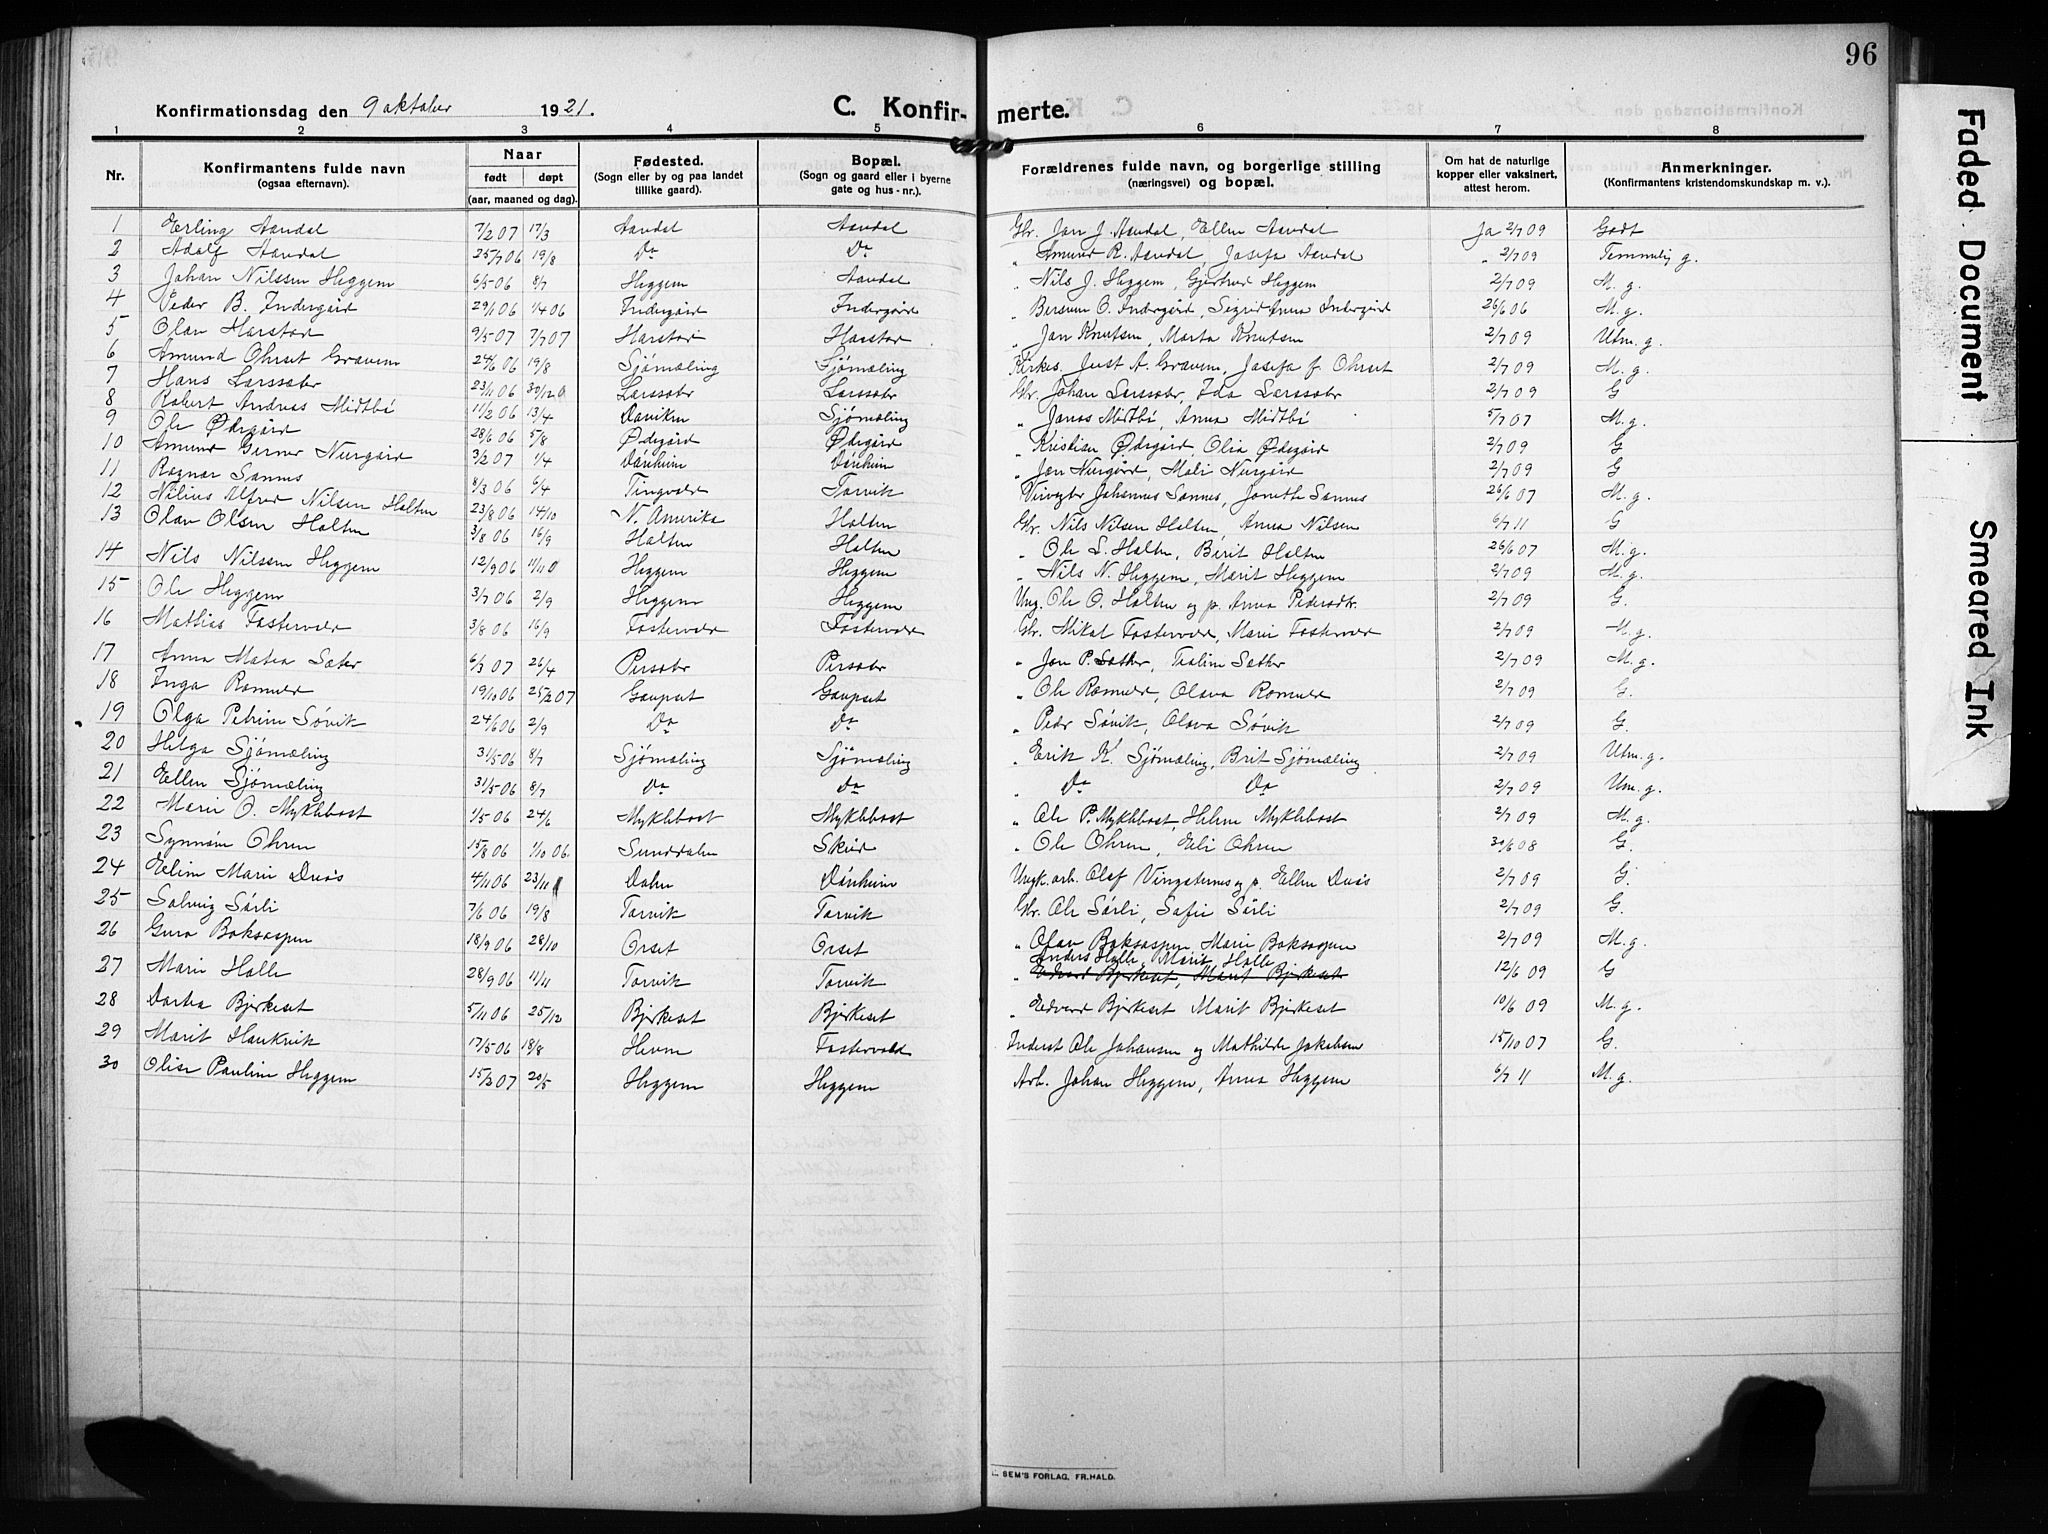 96
Konfirmationsdag den 9 oktober 1921.
C. Konfirmerte.
1 2 3 4 5 6 7 8
Nr.
Konfirmantens fulde navn
(ogsaa efternavn).
Naar
født døpt
(aar, maaned og dag).
Fødested.
(Sogn eller by og paa landet
tillike gaard).
Bopæl.
(Sogn og gaard eller i byerne
gate og hus-nr.).
Forældrenes fulde navn, og borgerlige stilling
(næringsvei) og bopæl.
Om hat de naturlige
kopper eller vaksinert,
attest herom.
Anmerkninger.
(Konfirmantens kristendomskundskap m. v.).
1 Erling Aandal 7/2 07 17/3 Aandal Aandal Gbr. Jon J. Aandal, Ellen Aandal Ja 2/7 09 Godt
2 Adolf Aandal 25/7 06 19/8 Do Do " Amund R. Aandal, Josefa Aandal " 2/7 09 Temmelig g.
3 Johan Nilssen Heggem 6/5 06 8/7 Heggem Aandal " Nils J. Heggem, Gjertrud Heggem 2/7 09 M. g.
4 Peder B. Indergård 29/1 06 1/4 06 Indergård Indergård " Bersvein O. Indergård, Sigrid Anna Indergård 26/6 06 M. g.
5 Olav Harstad 9/5 07 7/7 07 Harstad Harstad " Jon Knutsen, Marta Knutsen 2/7 09 Utm. g.
6 Amund Ohrset Gravem 24/6 06 19/8 Sjømæling Sjømæling Kirkes. Just A. Gravem, Josefa f. Ohrset 2/7 09 M. g.
7 Hans Larssøbr 23/11 06 30/12 0 Larssøbr Larssøbr Gbr. Johan Larssøbr, Ida Larssøbr 2/7 09 G
8 Robert Andreas Midtbø 11/2 06 13/4 Daviken Sjømæling " Jonas Midtbø, Anna Midtbø 5/7 07 M. g.
9 Ole Ødegård 28/6 06 5/8 Ødegård Ødegård " Kristian Ødegård, Olia Ødegård 2/7 09 G
10 Amund Gerner Nergård 3/2 07 1/4 Dønheim Dønheim " Jon Nergård, Mali Nergård 2/7 09 G
11 Ragnar Sannes 8/3 06 6/4 Tingvold Torvik Veivogter Johannes Sannes, Jonette Sannes 26/6 07 M. g.
12 Nilius Alfred Nilsen Halten 23/8 06 14/10 N. Amerika Halten Gbr. Nils Nilsen Halten, Anna Nilsen 6/7 11 G
13 Olav Olsen Halten 3/8 06 16/9 Halten Halten " Ole S. Halten, Berit Halten 26/6 07 M. g.
14 Nils Nilssen Heggem 12/9 06 11/11 0 Heggem Heggem " Nils N. Heggem, Marit Heggem 2/7 09 M. g.
15 Ole Heggem 3/7 06 2/9 Heggem Heggem Ung. Ole O. Halten og p. Anna Pedersdtr. 2/7 09 G.
16 Mathias Fostervold 3/8 06 16/9 Fostervold Fostervold Gbr. Mikal Fostervold, Marie Fostervold 2/7 09 M. g.
17 Anna Matea Sæter 6/3 07 26/4 Persøbr Persøbr " Jon P. Sæther, Tealine Sæther 2/7 09 M. g.
18 Inga Romuld 19/10 06 25/2 07 Gaupset Gaupset " Ole Romuld, Olava Romuld 2/7 09 G.
19 Olga Petrine Søvik 24/6 06 2/9 Do Do " Peder Søvik, Olava Søvik 2/7 09 G.
20 Helga Sjømæling 31/5 06 8/7 Sjømæling Sjømæling " Erik K. Sjømæling, Brit Sjømæling 2/7 09 Utm. g.
21 Ellen Sjømæling 31/5 06 8/7 Do Do " Do Do 2/7 09 Um. g.
22 Marie O. Myklebost 1/5 06 24/6 Myklebost Myklebost " Ole P. Myklebost, Helene Myklebost 2/7 09 M. g.
23 Synnøve Ohren 15/8 06 1/10 06. Sunddalen Skeid " Ole Ohren, Eli Ohren 30/6 08 G.
24 Eline Marie Duås 4/11 06 23/11 Dalen Dønheim Ungk. arb. Olaf Vingsternes og p. Ellen Duås 2/7 09 G.
25 Solveig Sørli 7/6 06 19/8 Torvik Torvik Gbr. Ole Sørli, Sofie Sørli 2/7 09 G.
26 Guro Boksaspen 18/9 06 28/10 Orset Orset " Olav Boksaspen, Marie Boksaspen 2/7 09 M. g.
27 Marie Holle 28/9 06 11/11 Torvik Torvik Anders Holle, Marit Holle
" Edvard Bjerkeset, Marit Bjerkeset 12/6 09 G
28 Dortea Bjerkeset 5/11 06 25/12 Bjerkeset Bjerkeset " Edvard Bjerkeset Marit Bjerkeset 10/6 09 M. g.
29 Marit Haukvik 17/5 06 18/8 Hevne Fostervold Inderst Ole Johansen og Mathilde Jakobsen 15/10 07 G.
30 Olise Pauline Heggem 15/3 07 20/5 Heggem Heggem Arb. Johan Heggem, Anna Heggem 6/7 11 M. g.
SEM'S FORLAG, FR.HALD.
Faded Document
Smeared Ink